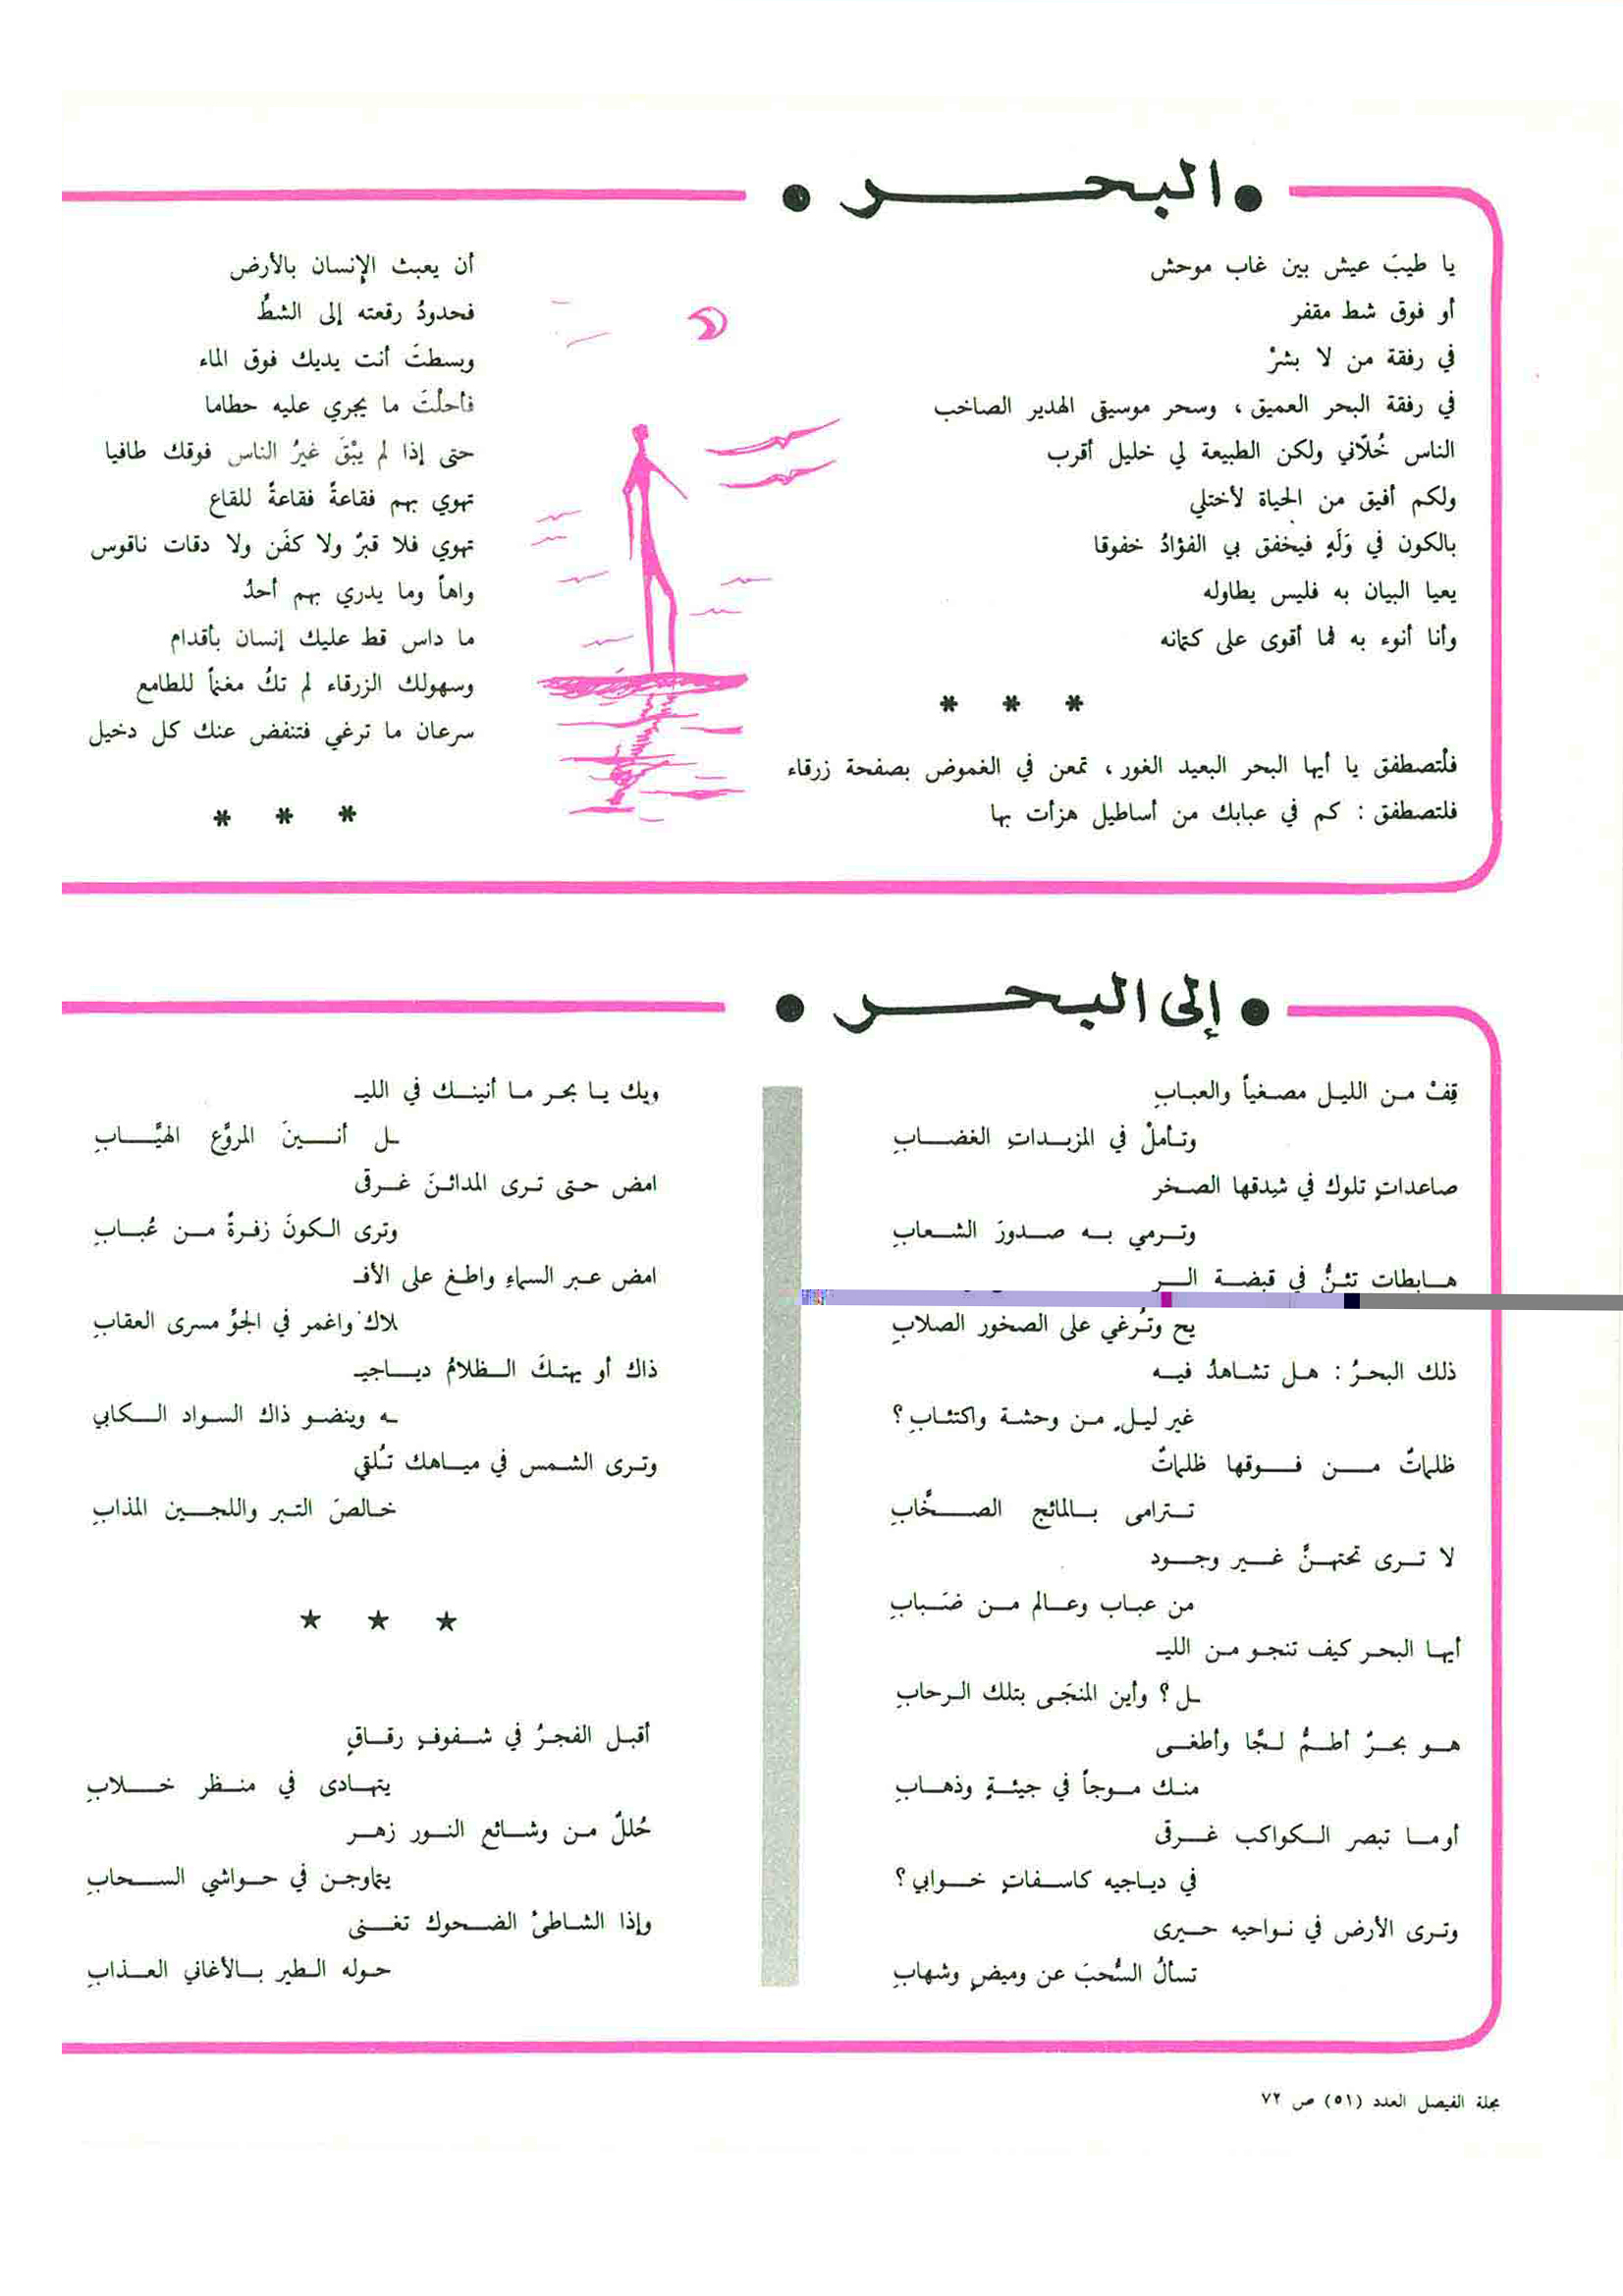 • البحر •
يا طيبَ عيش بين غاب موحش
أو فوق شط مقفر
في رفقة من لا بشرْ
في رفقة البحر العميق ، وسحر موسيقى الهدير الصاخب
الناس خُلّاني ولكن الطبيعة لي خليل أقرب
ولكم أفيق من الحياة لأختلي
بالكون في وَلَهٍ فيخفق بي الفؤادُ خفوقا
يعيا البيان به فليس يطاوله
وأنا أنوء به فما أقوى على كتمانه
* * *
فلْتصطفق يا أيها البحر البعيد الغور ، تمعن في الغموض بصفحة زرقاء
فلتصطفق : كم في عبابك من أساطيل هزأت بها
أن يعبث الإنسان بالأرض
فحدودُ رقعته إلى الشطِّ
وبسطتَ أنت يديك فوق الماء
فأحلْتَ ما يجري عليه حطاما
حتى إذا لم يبْقَ غيرُ الناس فوقك طافيا
تهوي بهم فقاعةً فقاعةً للقاع
تهوي فلا قبرٌ ولا كفَن ولا دقات ناقوس
واهاً وما يدري بهم أحدُ
ما داس قط عليك إنسان بأقدام
وسهولك الزرقاء لم تكُ مغنماً للطامع
سرعان ما ترغي فتنفض عنك كل دخيل
* * *
• إلى البحر •
قِفْ من الليل مصغياً والعبابِ
وتأملْ في المزبدات الغضابِ
صاعداتٍ تلوك في شدقها الصخر
وترمي به صدورَ الشعابِ
هابطات تئنُّ في قبضة الر
يح وتُرغي على الصخور الصلابِ
ذلك البحرُ : هل تشاهدُ فيه
غير ليلٍ من وحشة واكتئابِ ؟
ظلماتٌ من فوقها ظلماتٌ
تترامى بالمائج الصخَّابِ
لا ترى تحتهنَّ غير وجود
من عباب وعالم من ضَبابِ
أيها البحر كيف تنجو من الليـ
ـل ؟ وأين المنجَى بتلك الرحابِ
هو بحرٌ أطمُّ لجًّا وأطغى
منك موجاً في جيئةٍ وذهابِ
أو ما تبصر الكواكب غرقى
في دياجيه كاسفاتٍ خوابي ؟
وترى الأرض في نواحيه حيرى
تسألُ السُّحبَ عن وميضٍ وشهابِ
ويك يا بحر ما أنينك في الليـ
ـل أنينَ المروَّع الهيَّابِ
امض حتى ترى المدائنَ غرقى
وترى الكونَ زفرةً من عُبابِ
امض عبر السماءِ واطغ على الأفـ
لاك واغمر في الجوِّ مسرى العقابِ
ذاك أو يهتكَ الظلامُ دياجيـ
ـه وينضو ذاك السواد الكابي
وترى الشمس في مياهك تُلقي
خالصَ التبر واللجين المذابِ
★ ★ ★
أقبل الفجرُ في شفوفٍ رقاقٍ
يتهادى في منظر خلابِ
حُللٌ من وشائع النور زهر
يتماوجن في حواشي السحابِ
وإذا الشاطئُ الضحوك تغنى
حوله الطير بالأغاني العذابِ
مجلة الفيصل العدد (٥١) ص ٧٢